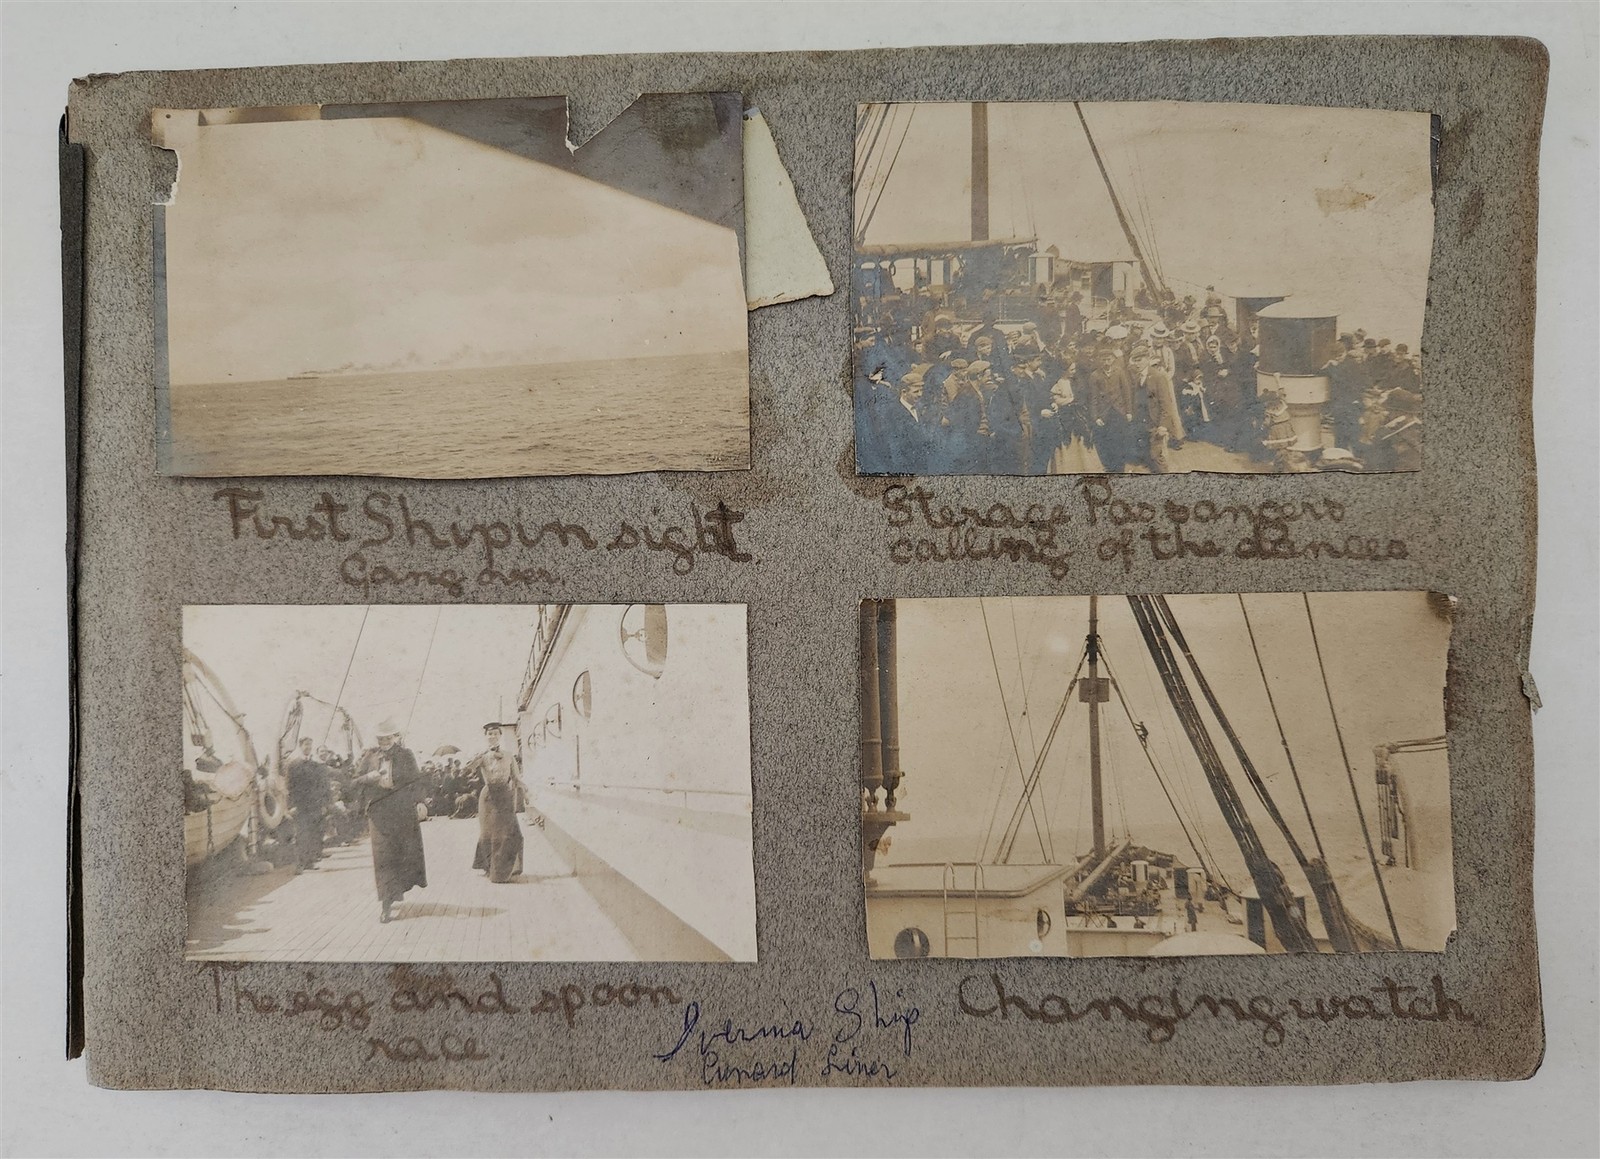 First Ship in sight
Going over.
Sterage Passangers
calling of the dances
The egg and spoon
race.
Changing watch
Iverma Ship
Cunard Liner